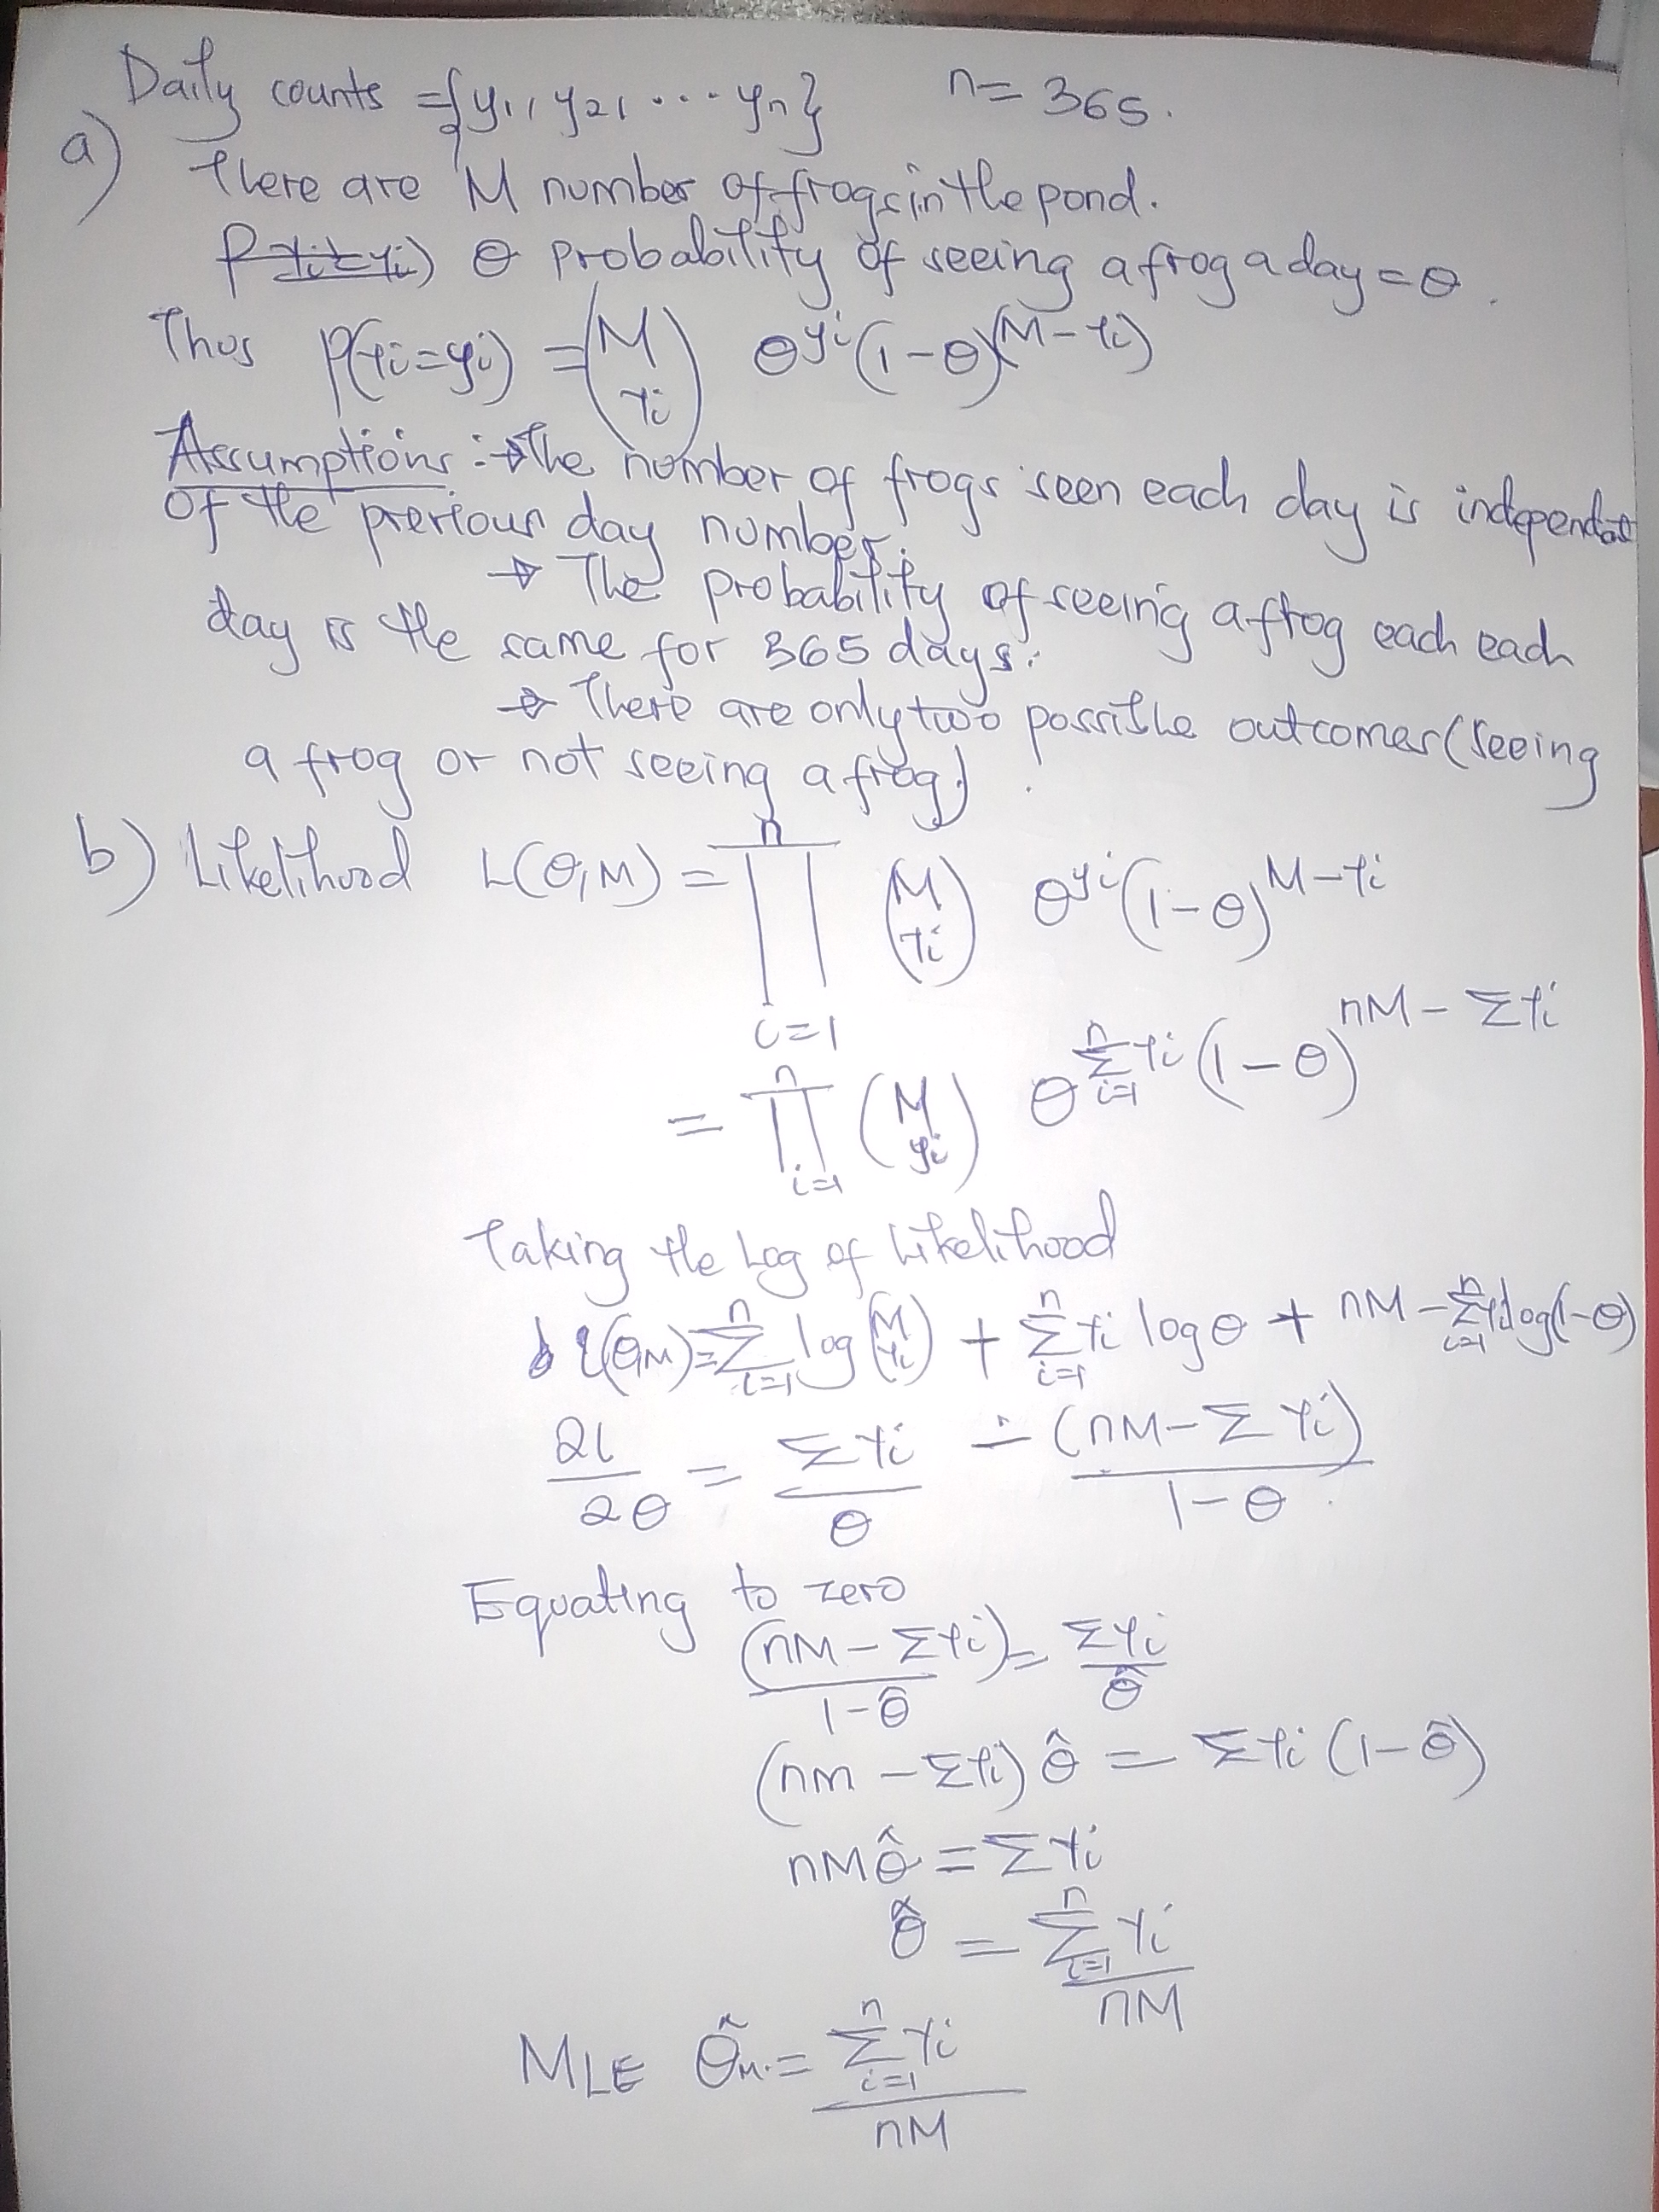 Daily counts = {y1, y2, ... yn} n = 365.
a) There are M number of frogs in the pond.
θ probability of seeing a frog a day = θ.
Thus P(Yi = yi) = (M Yi) θ^yi (1-θ)^(M-Yi)
Assumptions :→ The number of frogs seen each day is independent
of the previous day number.
→ The probability of seeing a frog each each
day is the same for 365 days.
→ There are only two possible outcomes (seeing
a frog or not seeing a frog).
b) Likelihood L(θ,M) = ∏_{i=1}^{n} (M Yi) θ^yi (1-θ)^{M-Yi}
= ∏_{i=1}^{n} (M yi) θ^{∑_{i=1}^{n} Yi} (1-θ)^{nM - ∑Yi}
Taking the Log of Likelihood
l(θ,M) = ∑_{i=1}^{n} log (M Yi) + ∑_{i=1}^{n} Yi log θ + nM - ∑_{i=1}^{n} Yi log(1-θ)
∂l/∂θ = ∑Yi/θ - (nM - ∑Yi)/(1-θ)
Equating to zero
(nM - ∑Yi)/(1-θ̂) = ∑Yi/θ̂
(nm - ∑Yi) θ̂ = ∑Yi (1-θ̂)
nMθ̂ = ∑Yi
θ̂ = ∑_{i=1}^{n} Yi / nM
MLE θ̂_M = ∑_{i=1}^{n} Yi / nM